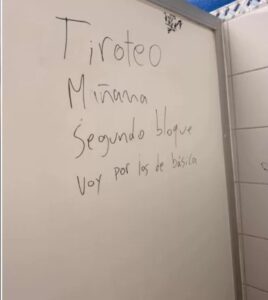 Tiroteo
Miñana
Segundo bloque
Voy por los de básica